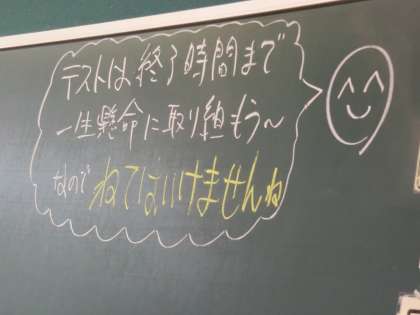 テストは終了時間まで
一生懸命に取り組もう～
なので ねてはいけませんね